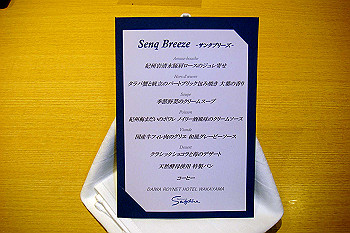 Senq Breeze -サンクブリーズ-
Amuse-bouche
紀州岩清水豚肩ロースのジュレ寄せ
Hors-d'œuvre
タラバ蟹と帆立のパートブリック包み焼き 大葉の香り
Soupe
季節野菜のクリームスープ
Poisson
紀州梅まだいのポワレ ノイリー酒風味のクリームソース
Viande
国産牛フィレ肉のグリエ 和風グレービーソース
Dessert
クラシックショコラと苺のデザート
天然酵母使用 特製パン
コーヒー
DAIWA ROYNET HOTEL WAKAYAMA